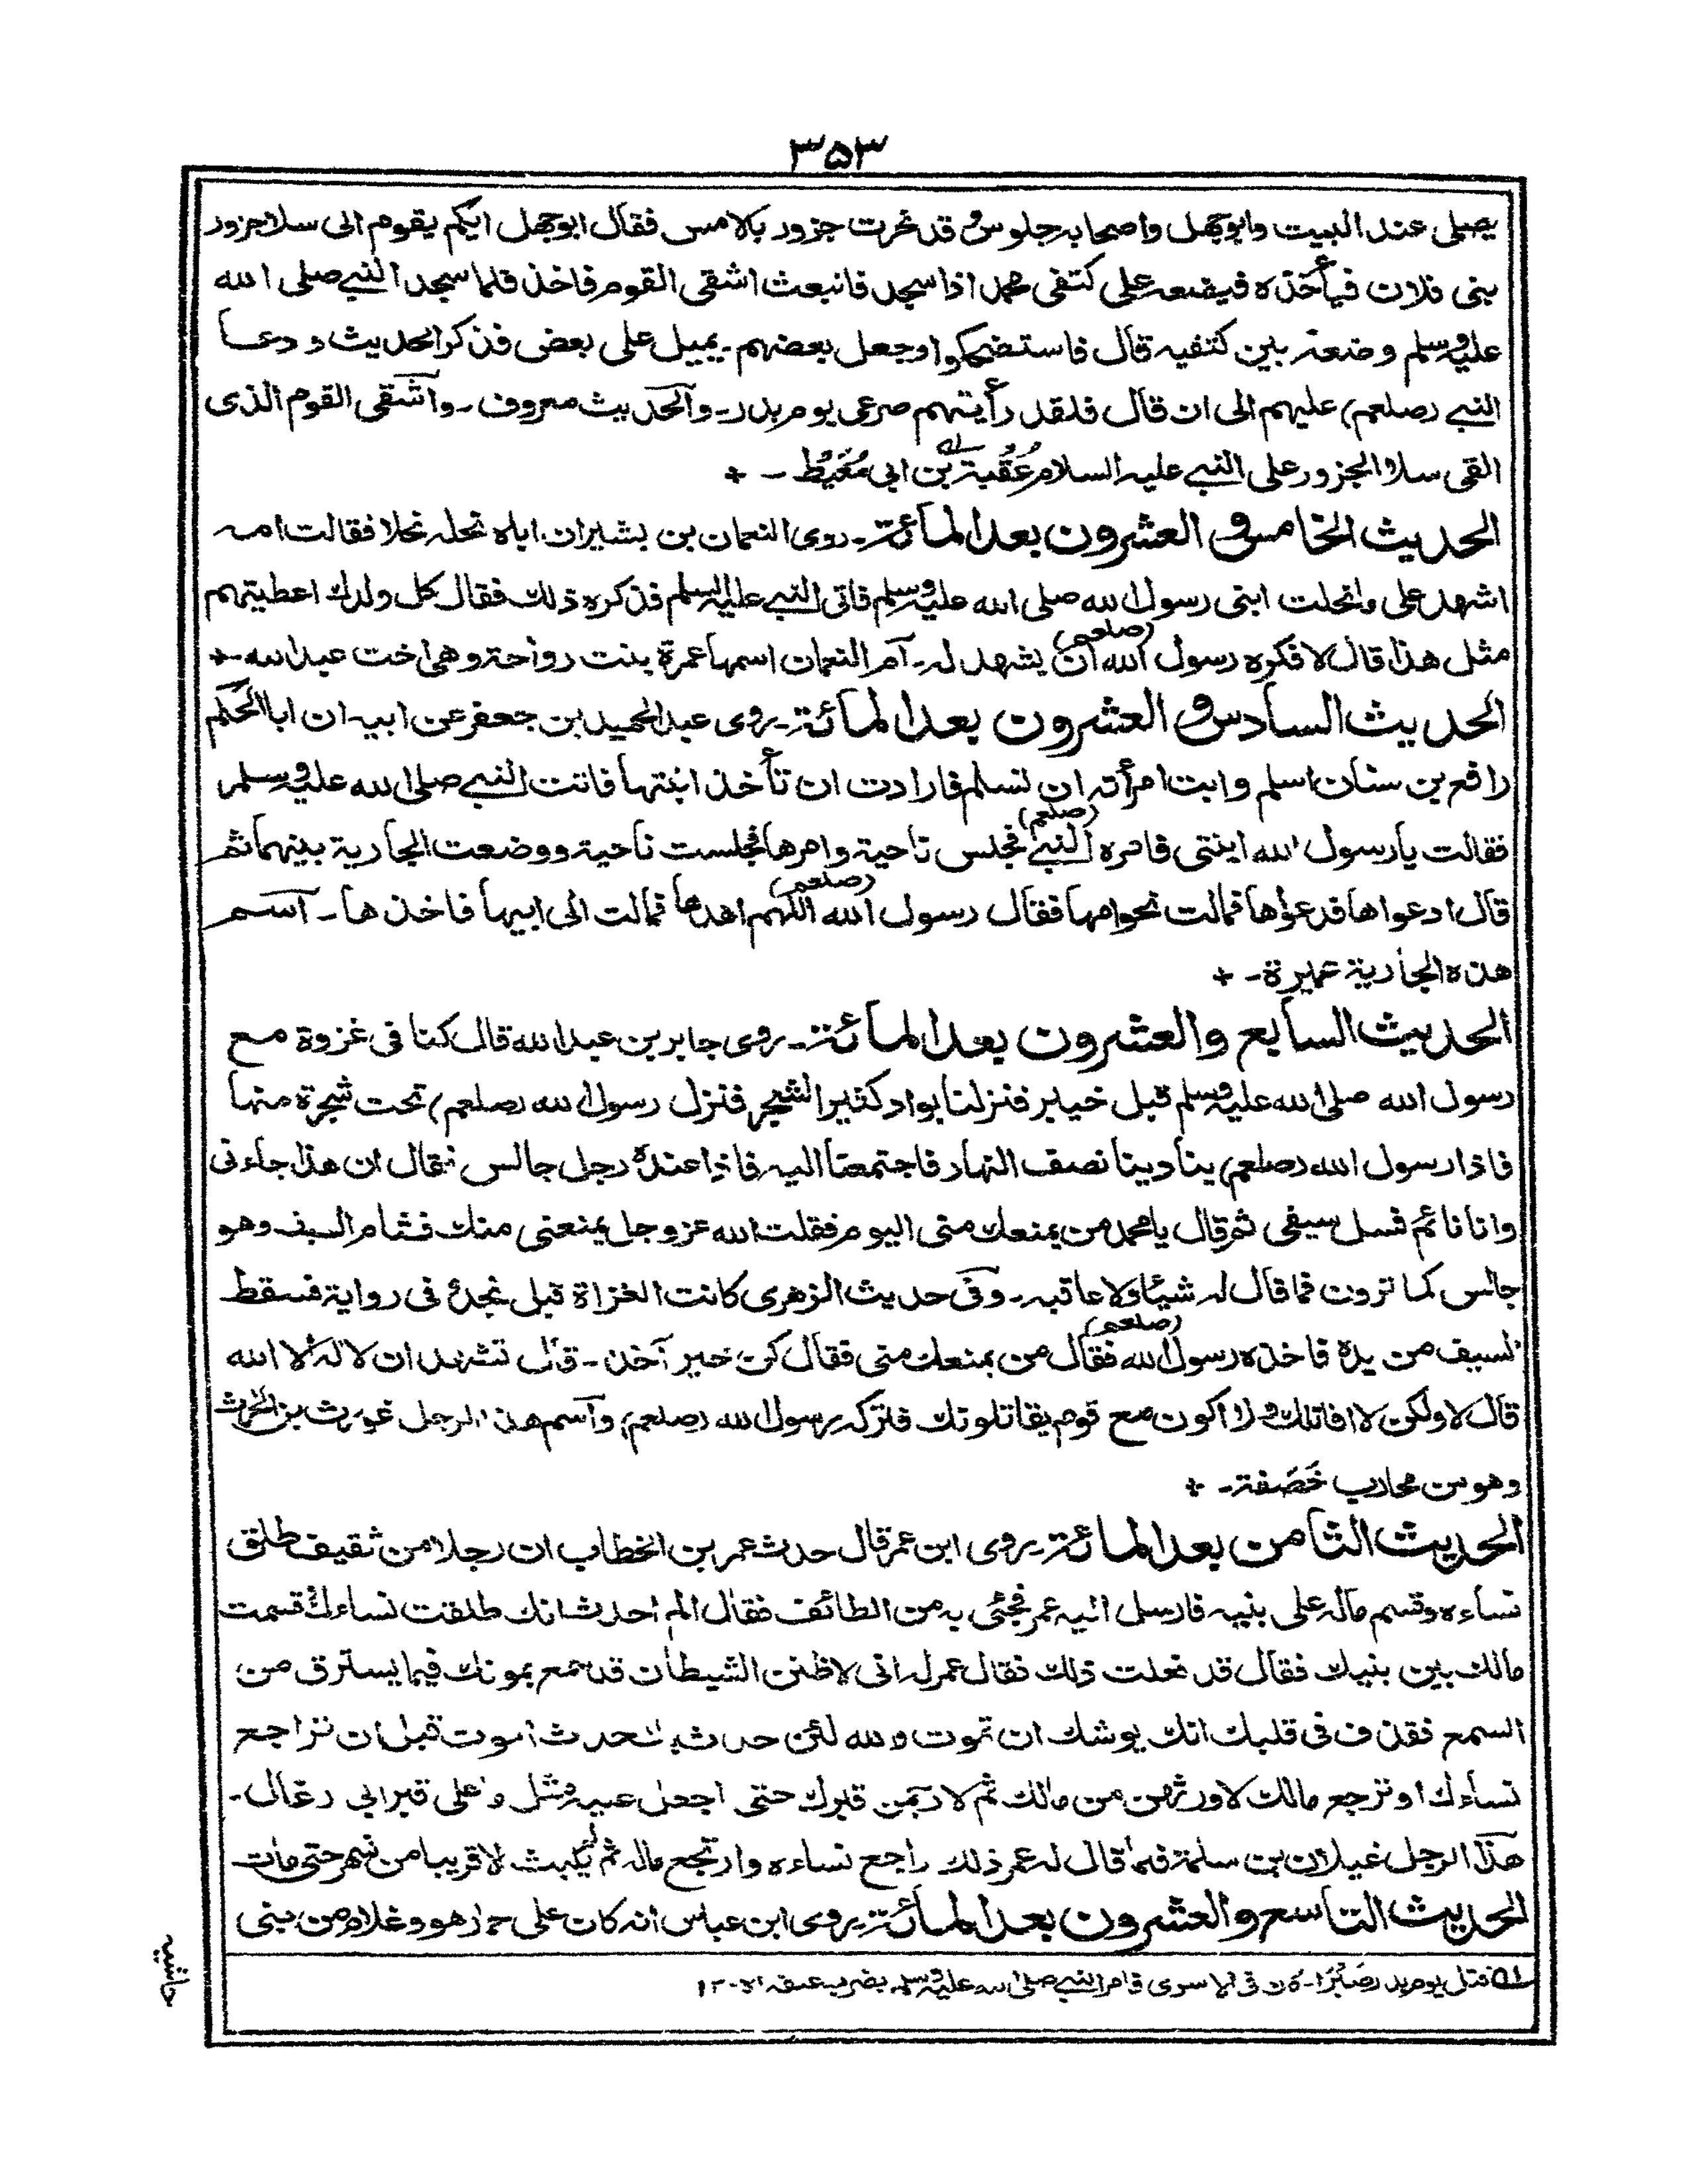 ۳۵۳
يصلى عند البيت وابوجهل واصحابه جلوس وقد نحرت جزور بالامس فقال ابوجهل ايكم يقوم الى سلا جزور
بنى فلان فيأخذه فيضعه على كتفى محمد اذا سجد فانبعث اشقى القوم فاخذ فلما سجد النبى صلى الله
عليه وسلم وضعه بين كتفيه قال فاستضحكوا وجعل بعضهم يميل على بعض فذكر الحديث ودعا
النبى (صلعم) عليهم الى ان قال فلقد رأيتهم صرعى يوم بدر۔ والحديث معروف۔ واشقى القوم الذى
القى سلا الجزور على النبى عليه السلام عُقُبة بن ابى مُعَيْط ۔ +
الحديث الخامس و العشرون بعد المائة۔ روى النعمان بن بشير ان اباه نحله نحلا فقالت امه
اشهد على ما نحلت ابنى رسول الله صلى الله عليه وسلم فاتى النبى عليه السلام فذكر ه ذلك فقال كل ولدك اعطيتهم
مثل هذا قال لا فكره رسول الله (صلعم) ان يشهد له۔ ام النعمان اسمها عمرة بنت رواحة وهى اخت عبد الله۔+
الحديث السادس و العشرون بعد المائة۔ روى عبد الحميد بن جعفر عن ابيه ان ابا الحكم
رافع بن سنان اسلم وابت امرأته ان تسلم فارادت ان تأخذ ابنتها فاتت النبى صلى الله عليه وسلم
فقالت يا رسول الله ابنتى فامره النبى (صلعم) فجلس ناحية وامرها فجلست ناحية ووضعت الجارية بينهما ثم
قال ادعواها فدعواها فمالت نحو امها فقال رسول الله (صلعم) اللهم اهدها فمالت الى ابيها فاخذ ها۔ اسم
هذه الجارية عميرة۔ +
الحديث السابع والعشرون بعد المائة۔ روى جابر بن عبد الله قال كنا فى غزوة مع
رسول الله صلى الله عليه وسلم قبل خيابر فنزلنا بواد كثير الشجر فنزل رسول الله (صلعم) تحت شجرة منها
فاذا رسول الله (صلعم) ينادينا نصف النهار فاجتمعنا اليه فاذا عنده رجل جالس فقال ان هذا جاءنى
وانا نائم فسل سيفى ثم قال يا محمد من يمنعك منى اليوم فقلت الله عز وجل يمنعنى منك فشام السيف وهو
جالس كما ترون فما قال له شيئا ولا عاقبه۔ وفى حديث الزهرى كانت الغزاة قبل نجد و فى رواية فسقط
السيف من يده فاخذه رسول الله (صلعم) فقال من يمنعك منى فقال كن خير آخذ۔ قال تشهد ان لا اله الا الله
قال لا ولكن لا اقاتلك ولا اكون مع قوم يقاتلونك فتركه رسول الله (صلعم) واسم هذا الرجل غورث بن الحرث
وهو من محارب خَصَفة۔ +
الحديث الثامن بعد المائة۔ روى ابن عمر قال حدث عمر بن الخطاب ان رجلا من ثقيف طلق
نساءه وقسم ماله على بنيه فارسل اليه عمر فجئى به من الطائف فقال الم احدث انك طلقت نساءك وقسمت
مالك بين بنيك فقال قد فعلت ذلك فقال عمر له انى لاظنن الشيطان قد سمع بموتك فيما يسترق من
السمع فقذف فى قلبك انك يوشك ان تموت والله لئن حدث بك حدث الموت قبل ان تراجع
نساءك او ترجع مالك لاورثهن من مالك ثم لارجمن قبرك حتى اجعل عليه مثل ما على قبر ابى رغال۔
هذا الرجل غيلان بن سلمة فلما قال له عمر ذلك راجع نساءه وارتجع ماله ثم لم يلبث الا قريبا من شهر حتى مات
الحديث التاسع والعشرون بعد المائة۔ روى ابن عباس انه كان على حمار هو وغلام من بنى
حاشيه
له قتل يوم بدر صَبْرًا۔ كان فى الاسرى فامر النبى صلى الله عليه وسلم بضرب عنقه اه۔ ۱۲